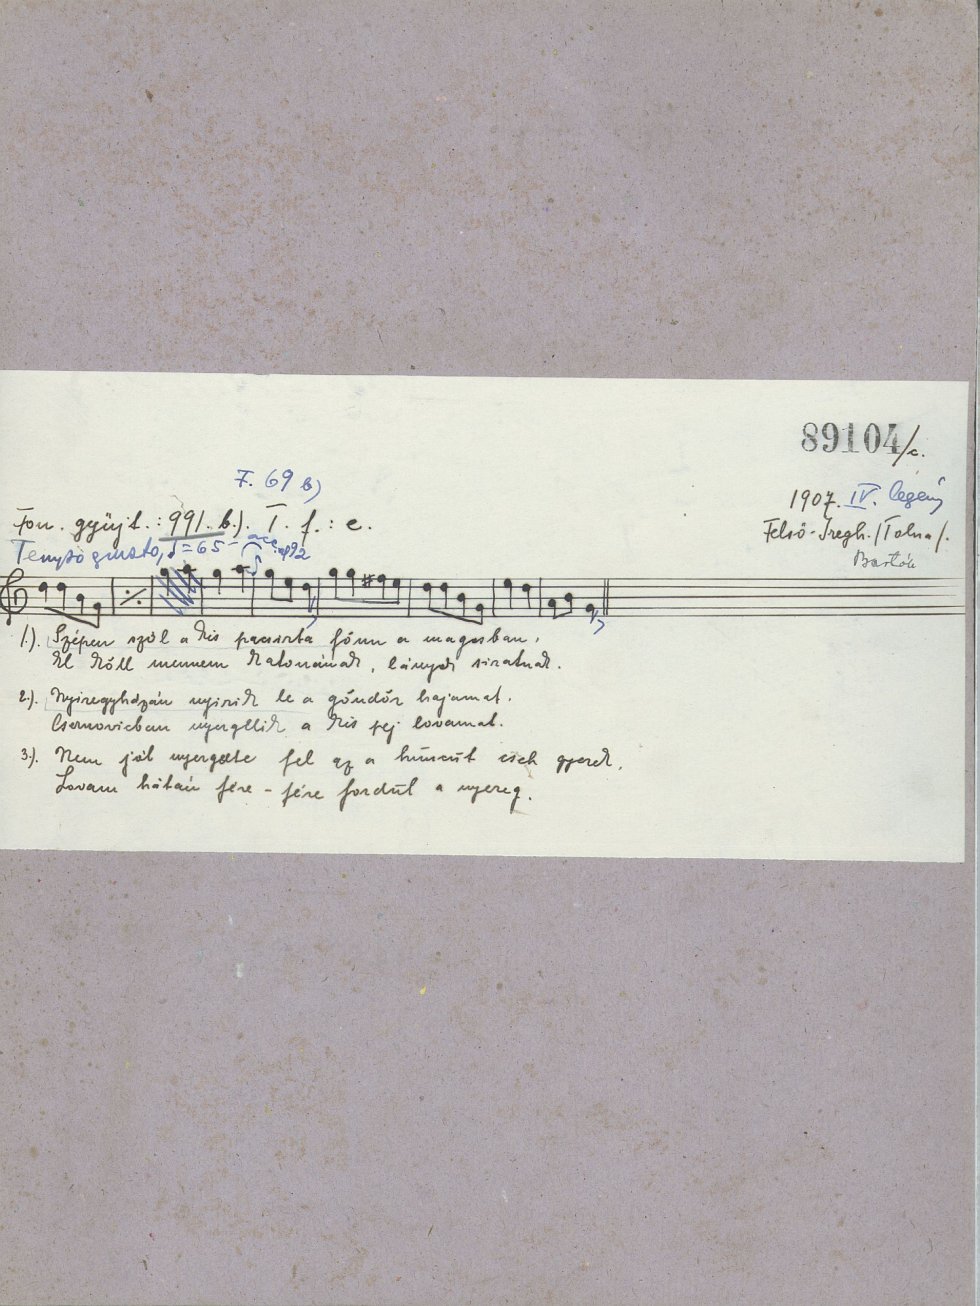 89104/c.
F. 69 b)
1907. IV. legény
Fon. gyüjt.: 991. b.). T. f.: e.
Felső-Iregh. /Tolna/.
Tempo giusto, ♩=65 - acc.
Bartók
1.). Szépen szól a kis pacsirta fönn a magasban,
El köll mennem katonának, lányok siratnak.
2.). Nyiregyházán nyirik le a göndör hajamat.
Csernovicban nyergellik a kis pej lovamat.
3.). Nem jól nyergelte fel az a huncut cseh gyerek,
Lovam hátán fére - fére fordúl a nyereg.